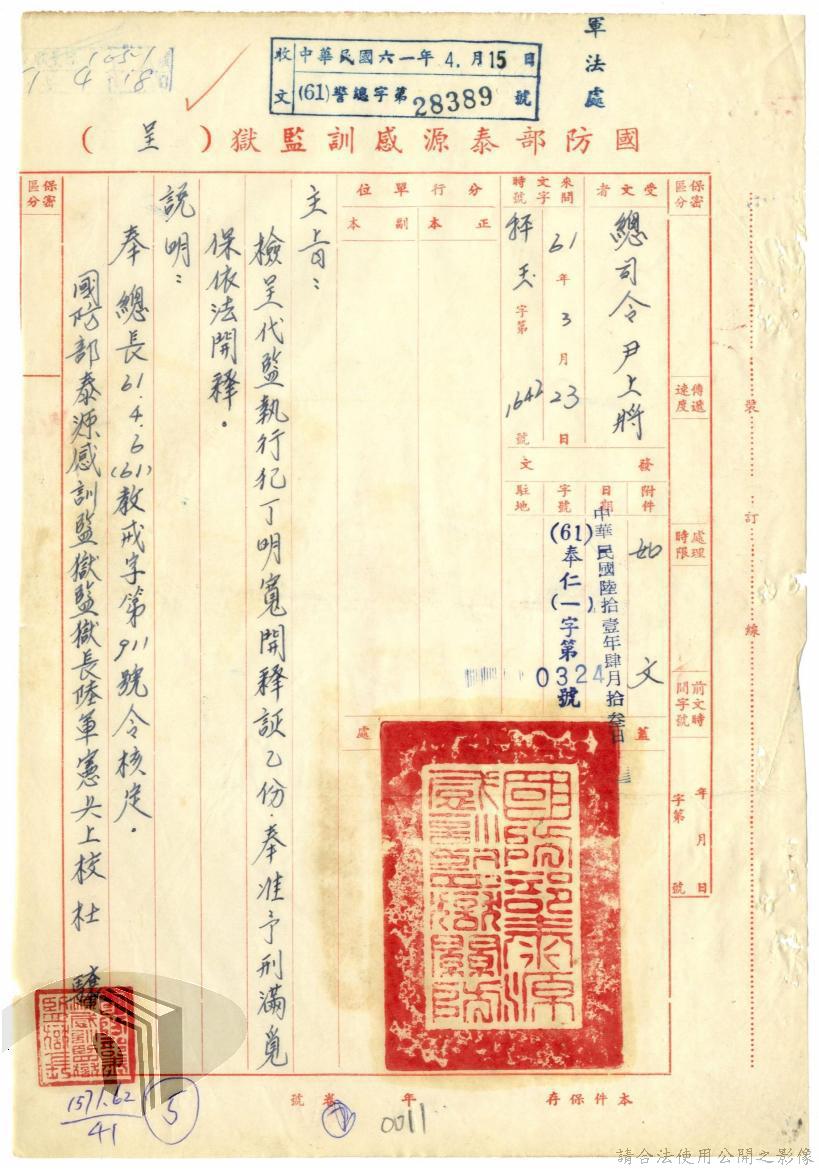 軍法處
收文 中華民國六一年4.月15日
(61)警總字第28389號
國防部泰源感訓監獄（呈）
保密區分
傳遞速度
處理時限
前文時間字號
年月日
字第號
受文者
總司令尹上將
來文時間字號
61年3月23日
字第1642號
分行單位
正本
副本
發文
附件
如文
日期
中華民國陸拾壹年肆月拾叁日
字號
(61)奉仁(一)字第0324號
駐地
蓋
處
主旨：
檢呈代監執行犯丁明寬開釋証乙份．奉准予刑滿覓
保依法開釋．
說明：
奉 總長61.4.6(61)教戒字第911號令核定．
國防部泰源感訓監獄監獄長陸軍憲兵上校杜
保密區分
國防部泰源感訓監獄關防
裝
訂
線
本件保存年
卷號
0011
5
1571.62
41
請合法使用公開之影像